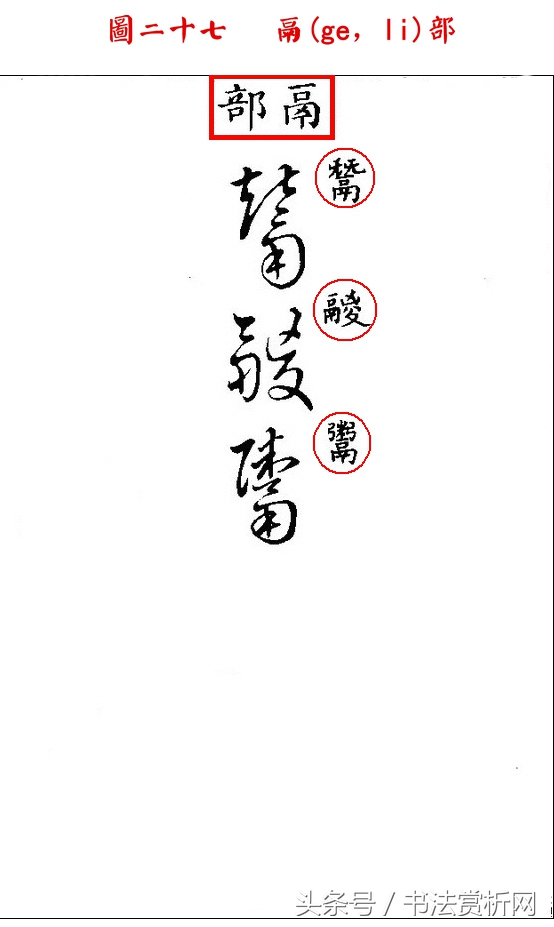 圖二十七 鬲(ge, li)部
鬲部
鬵 鬵
鬷 鬷
鬻 鬻
头条号 / 书法赏析网